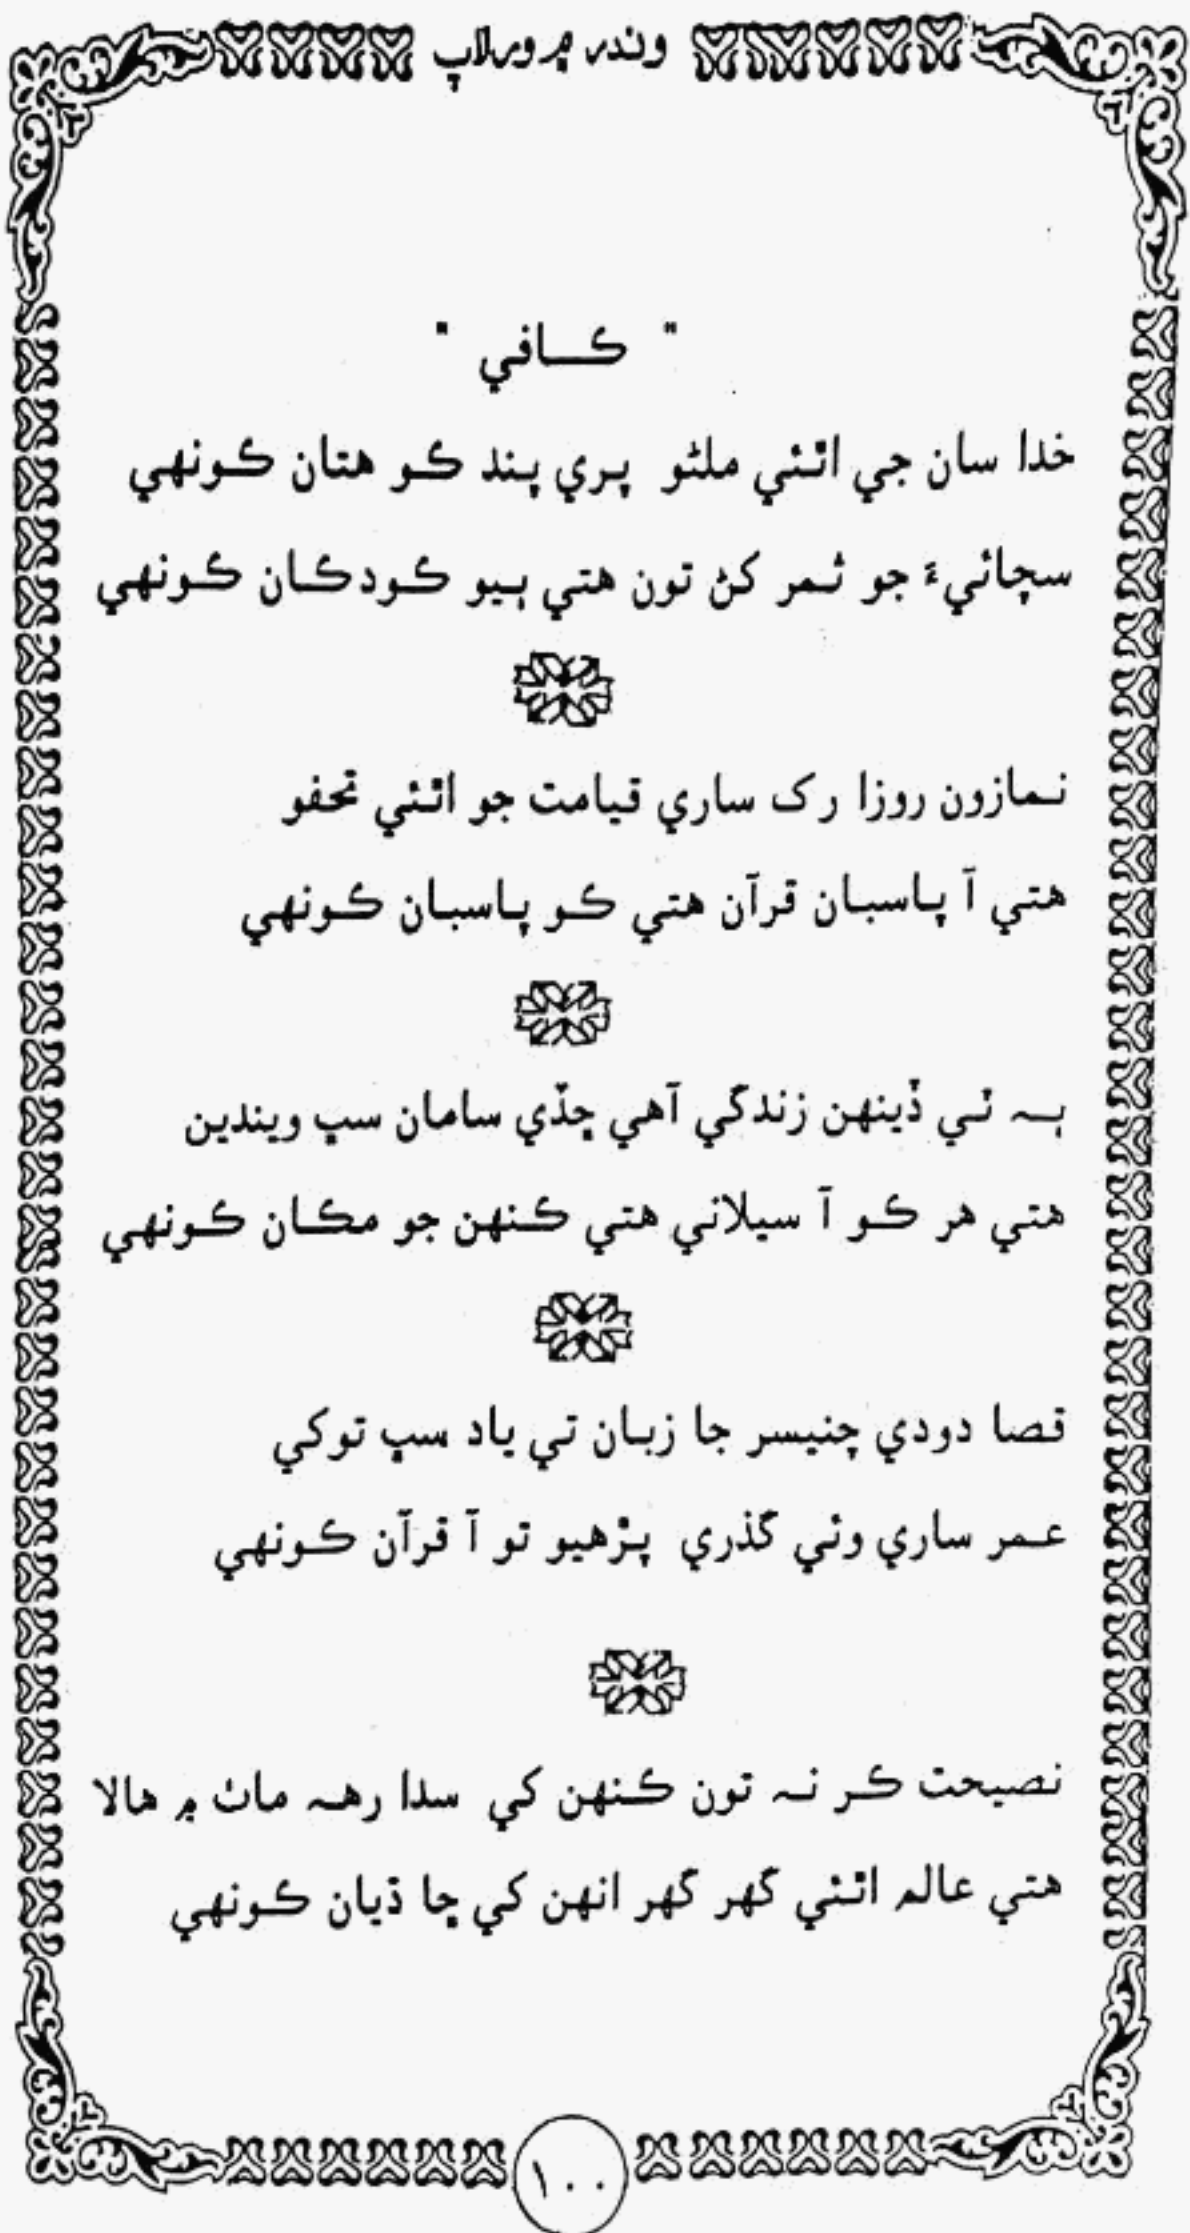 وندر ۾ ورلاپ
" ڪافي "
خدا سان جي اٿئي ملڻو پري پنڌ ڪو هتان ڪونهي
سچائيءَ جو ثمر کڻ تون هتي ٻيو ڪو دڪان ڪونهي
نمازون روزا رک ساري قيامت جو اٿئي تحفو
هتي آ پاسبان قرآن هتي ڪو پاسبان ڪونهي
ٻہ ٽي ڏينهن زندگي آهي ڇڏي سامان سڀ ويندين
هتي هر ڪو آ سيلاني هتي ڪنهن جو مڪان ڪونهي
قصا دودي چنيسر جا زبان تي ياد سڀ توکي
عمر ساري وئي گذري پڙهيو تو آ قرآن ڪونهي
نصيحت ڪر نہ تون ڪنهن کي سدا رهہ ماٺ ۾ هالا
هتي عالم اٿئي گهر گهر انهن کي ڇا ڌيان ڪونهي
۱۰۰